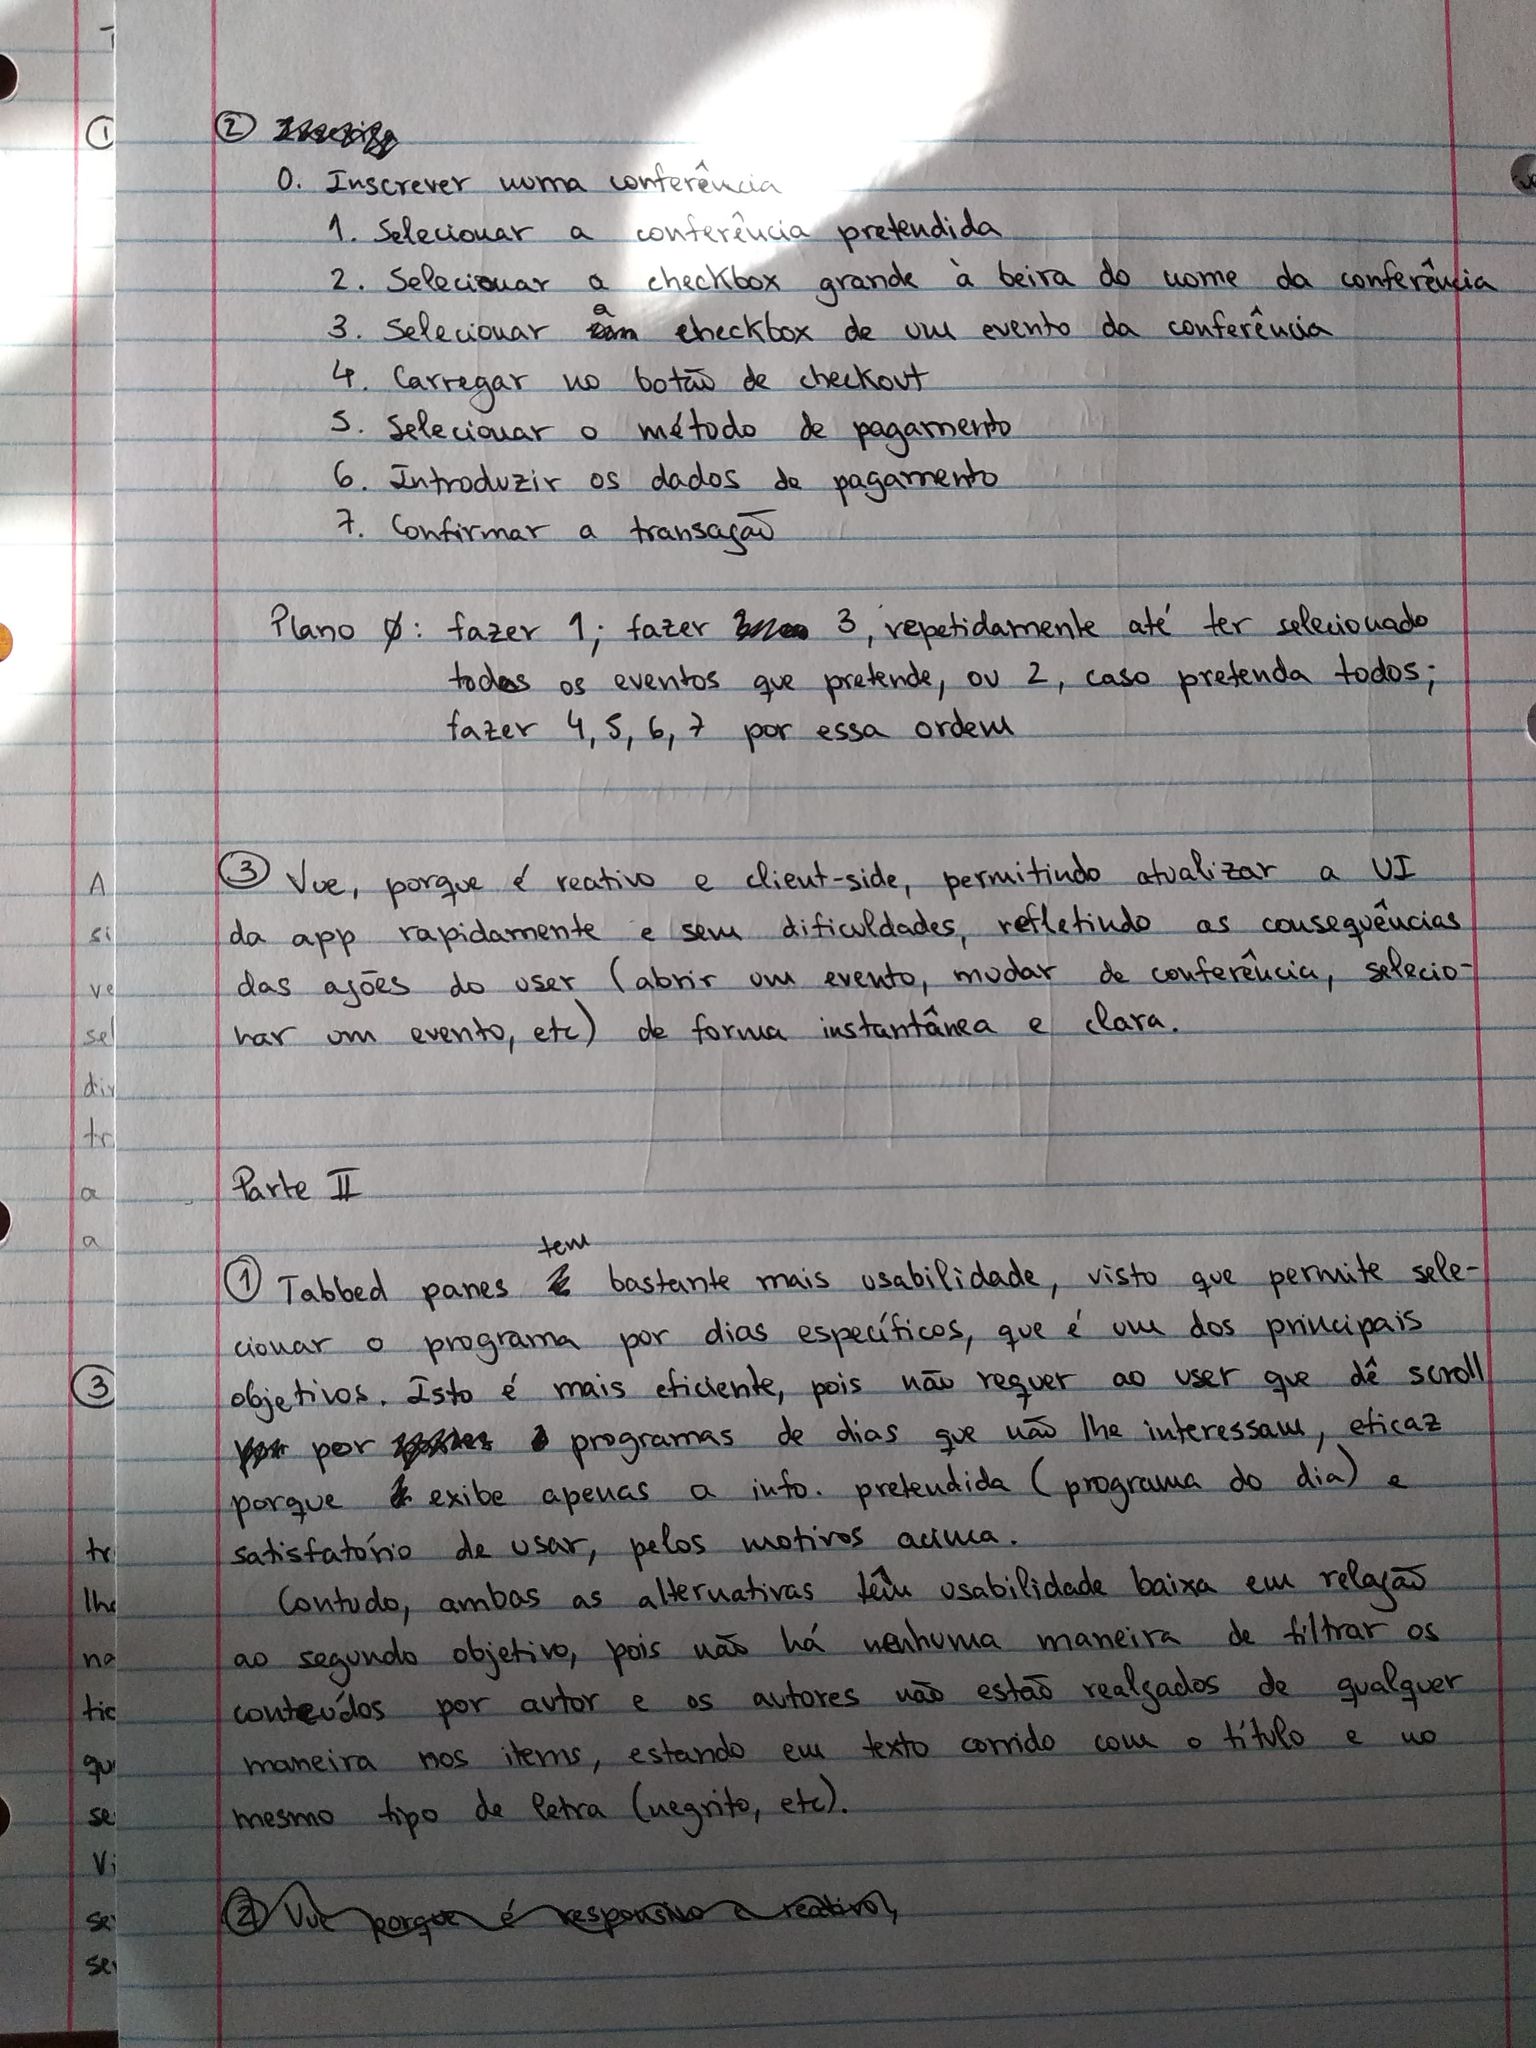 ②
0. Inscrever numa conferência
1. Selecionar a conferência pretendida
2. Selecionar a checkbox grande à beira do nome da conferência
3. Selecionar a checkbox de um evento da conferência
4. Carregar no botão de checkout
5. Selecionar o método de pagamento
6. Introduzir os dados de pagamento
7. Confirmar a transação
Plano 0: fazer 1; fazer 3, repetidamente até ter selecionado
todos os eventos que pretende, ou 2, caso pretenda todos;
fazer 4, 5, 6, 7 por essa ordem
③ Vue, porque é reativo e client-side, permitindo atualizar a UI
da app rapidamente e sem dificuldades, refletindo as consequências
das ações do user (abrir um evento, mudar de conferência, selecio-
nar um evento, etc) de forma instantânea e clara.
Parte II
① Tabbed panes tem bastante mais usabilidade, visto que permite sele-
cionar o programa por dias específicos, que é um dos principais
objetivos. Isto é mais eficiente, pois não requer ao user que dê scroll
por programas de dias que não lhe interessam, eficaz
porque exibe apenas a info. pretendida (programa do dia) e
satisfatório de usar, pelos motivos acima.
Contudo, ambas as alternativas têm usabilidade baixa em relação
ao segundo objetivo, pois não há nenhuma maneira de filtrar os
conteúdos por autor e os autores não estão realçados de qualquer
maneira nos items, estando em texto corrido com o título e no
mesmo tipo de letra (negrito, etc).
② Vue porque é responsivo e reativo,